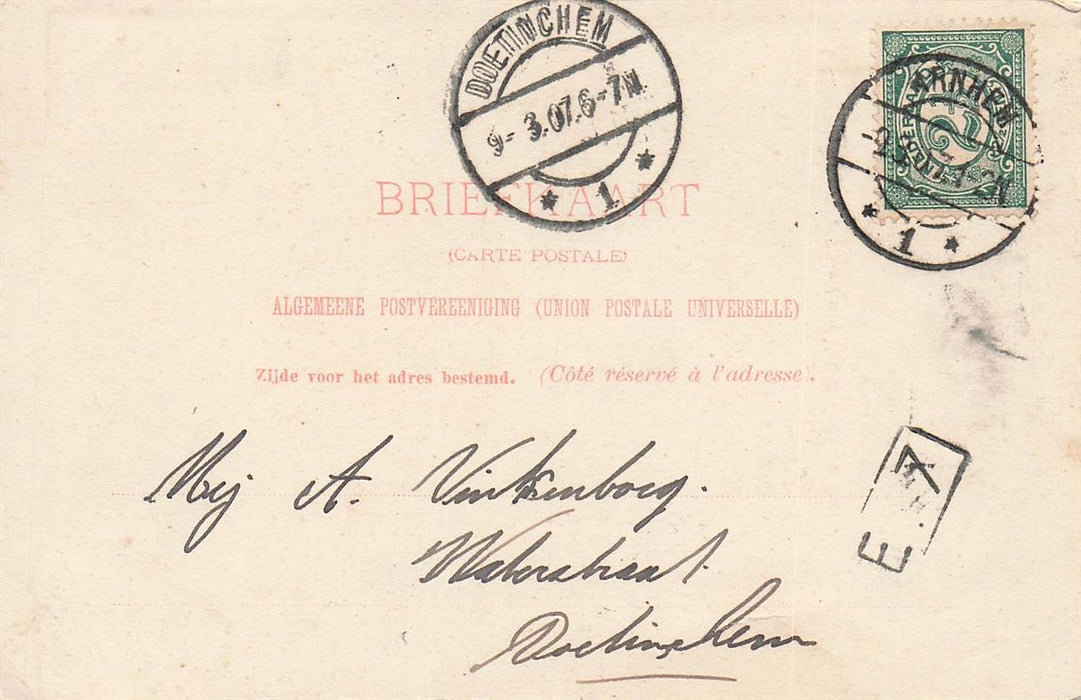 DOETINCHEM
9- 3.07.6-7N.
1
ARNHEM
1
BRIEFKAART
(CARTE POSTALE)
ALGEMEENE POSTVEREENIGING (UNION POSTALE UNIVERSELLE)
Zijde voor het adres bestemd. (Côté réservé à l'adresse).
E. 7
Mej A. Vinkenborg.
Waterstraat
Doetinchem